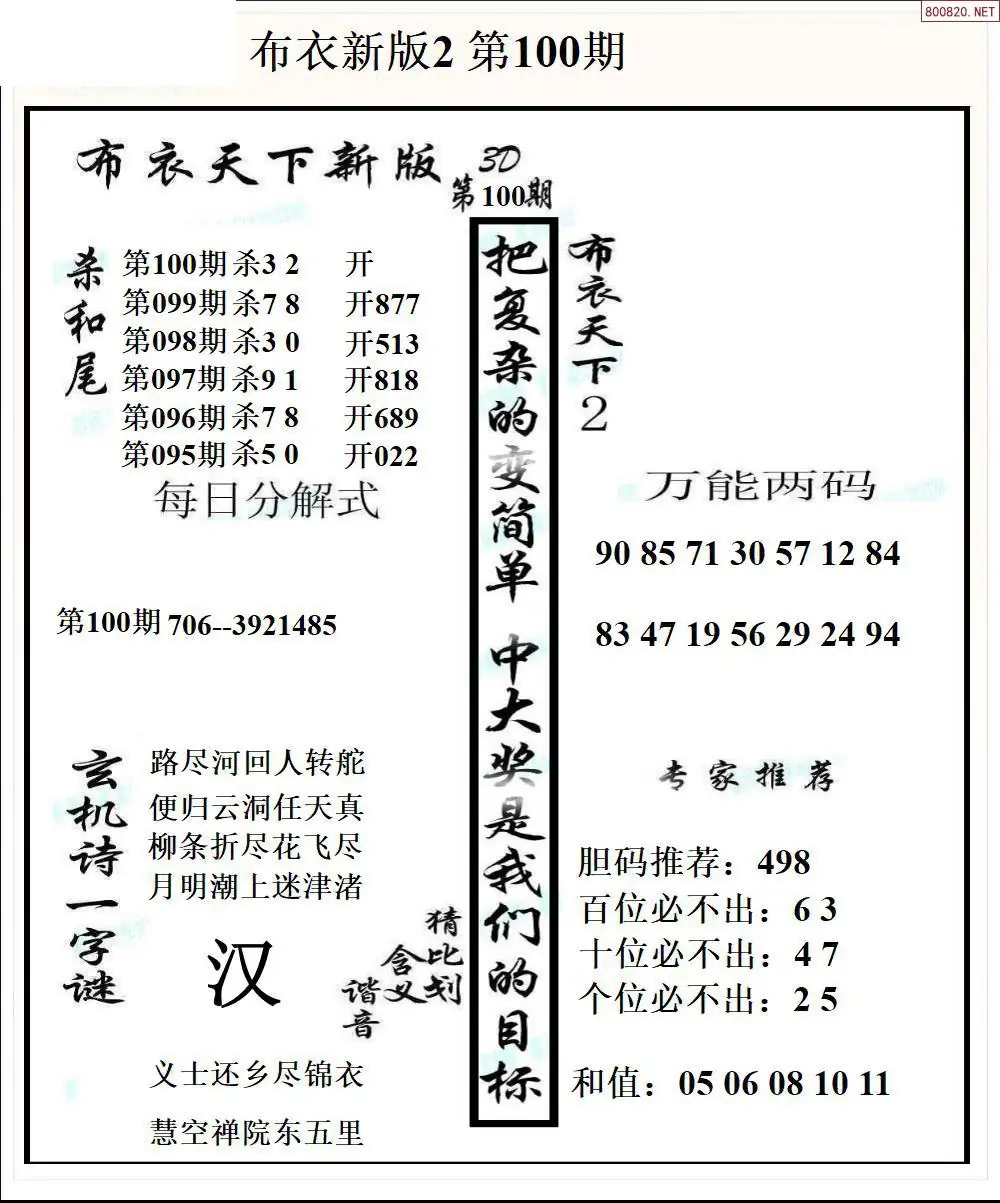 800820.NET
布衣新版2 第100期
布衣天下新版 3D
第100期
杀和尾
第100期 杀3 2 开
第099期 杀7 8 开877
第098期 杀3 0 开513
第097期 杀9 1 开818
第096期 杀7 8 开689
第095期 杀5 0 开022
每日分解式
第100期 706--3921485
玄机诗一字谜
路尽河回人转舵
便归云洞任天真
柳条折尽花飞尽
月明潮上迷津渚
汉
猜比划
含义
谐音
义士还乡尽锦衣
慧空禅院东五里
把复杂的变简单 中大奖是我们的目标
布衣天下2
万能两码
90 85 71 30 57 12 84
83 47 19 56 29 24 94
专家推荐
胆码推荐：498
百位必不出：6 3
十位必不出：4 7
个位必不出：2 5
和值：05 06 08 10 11